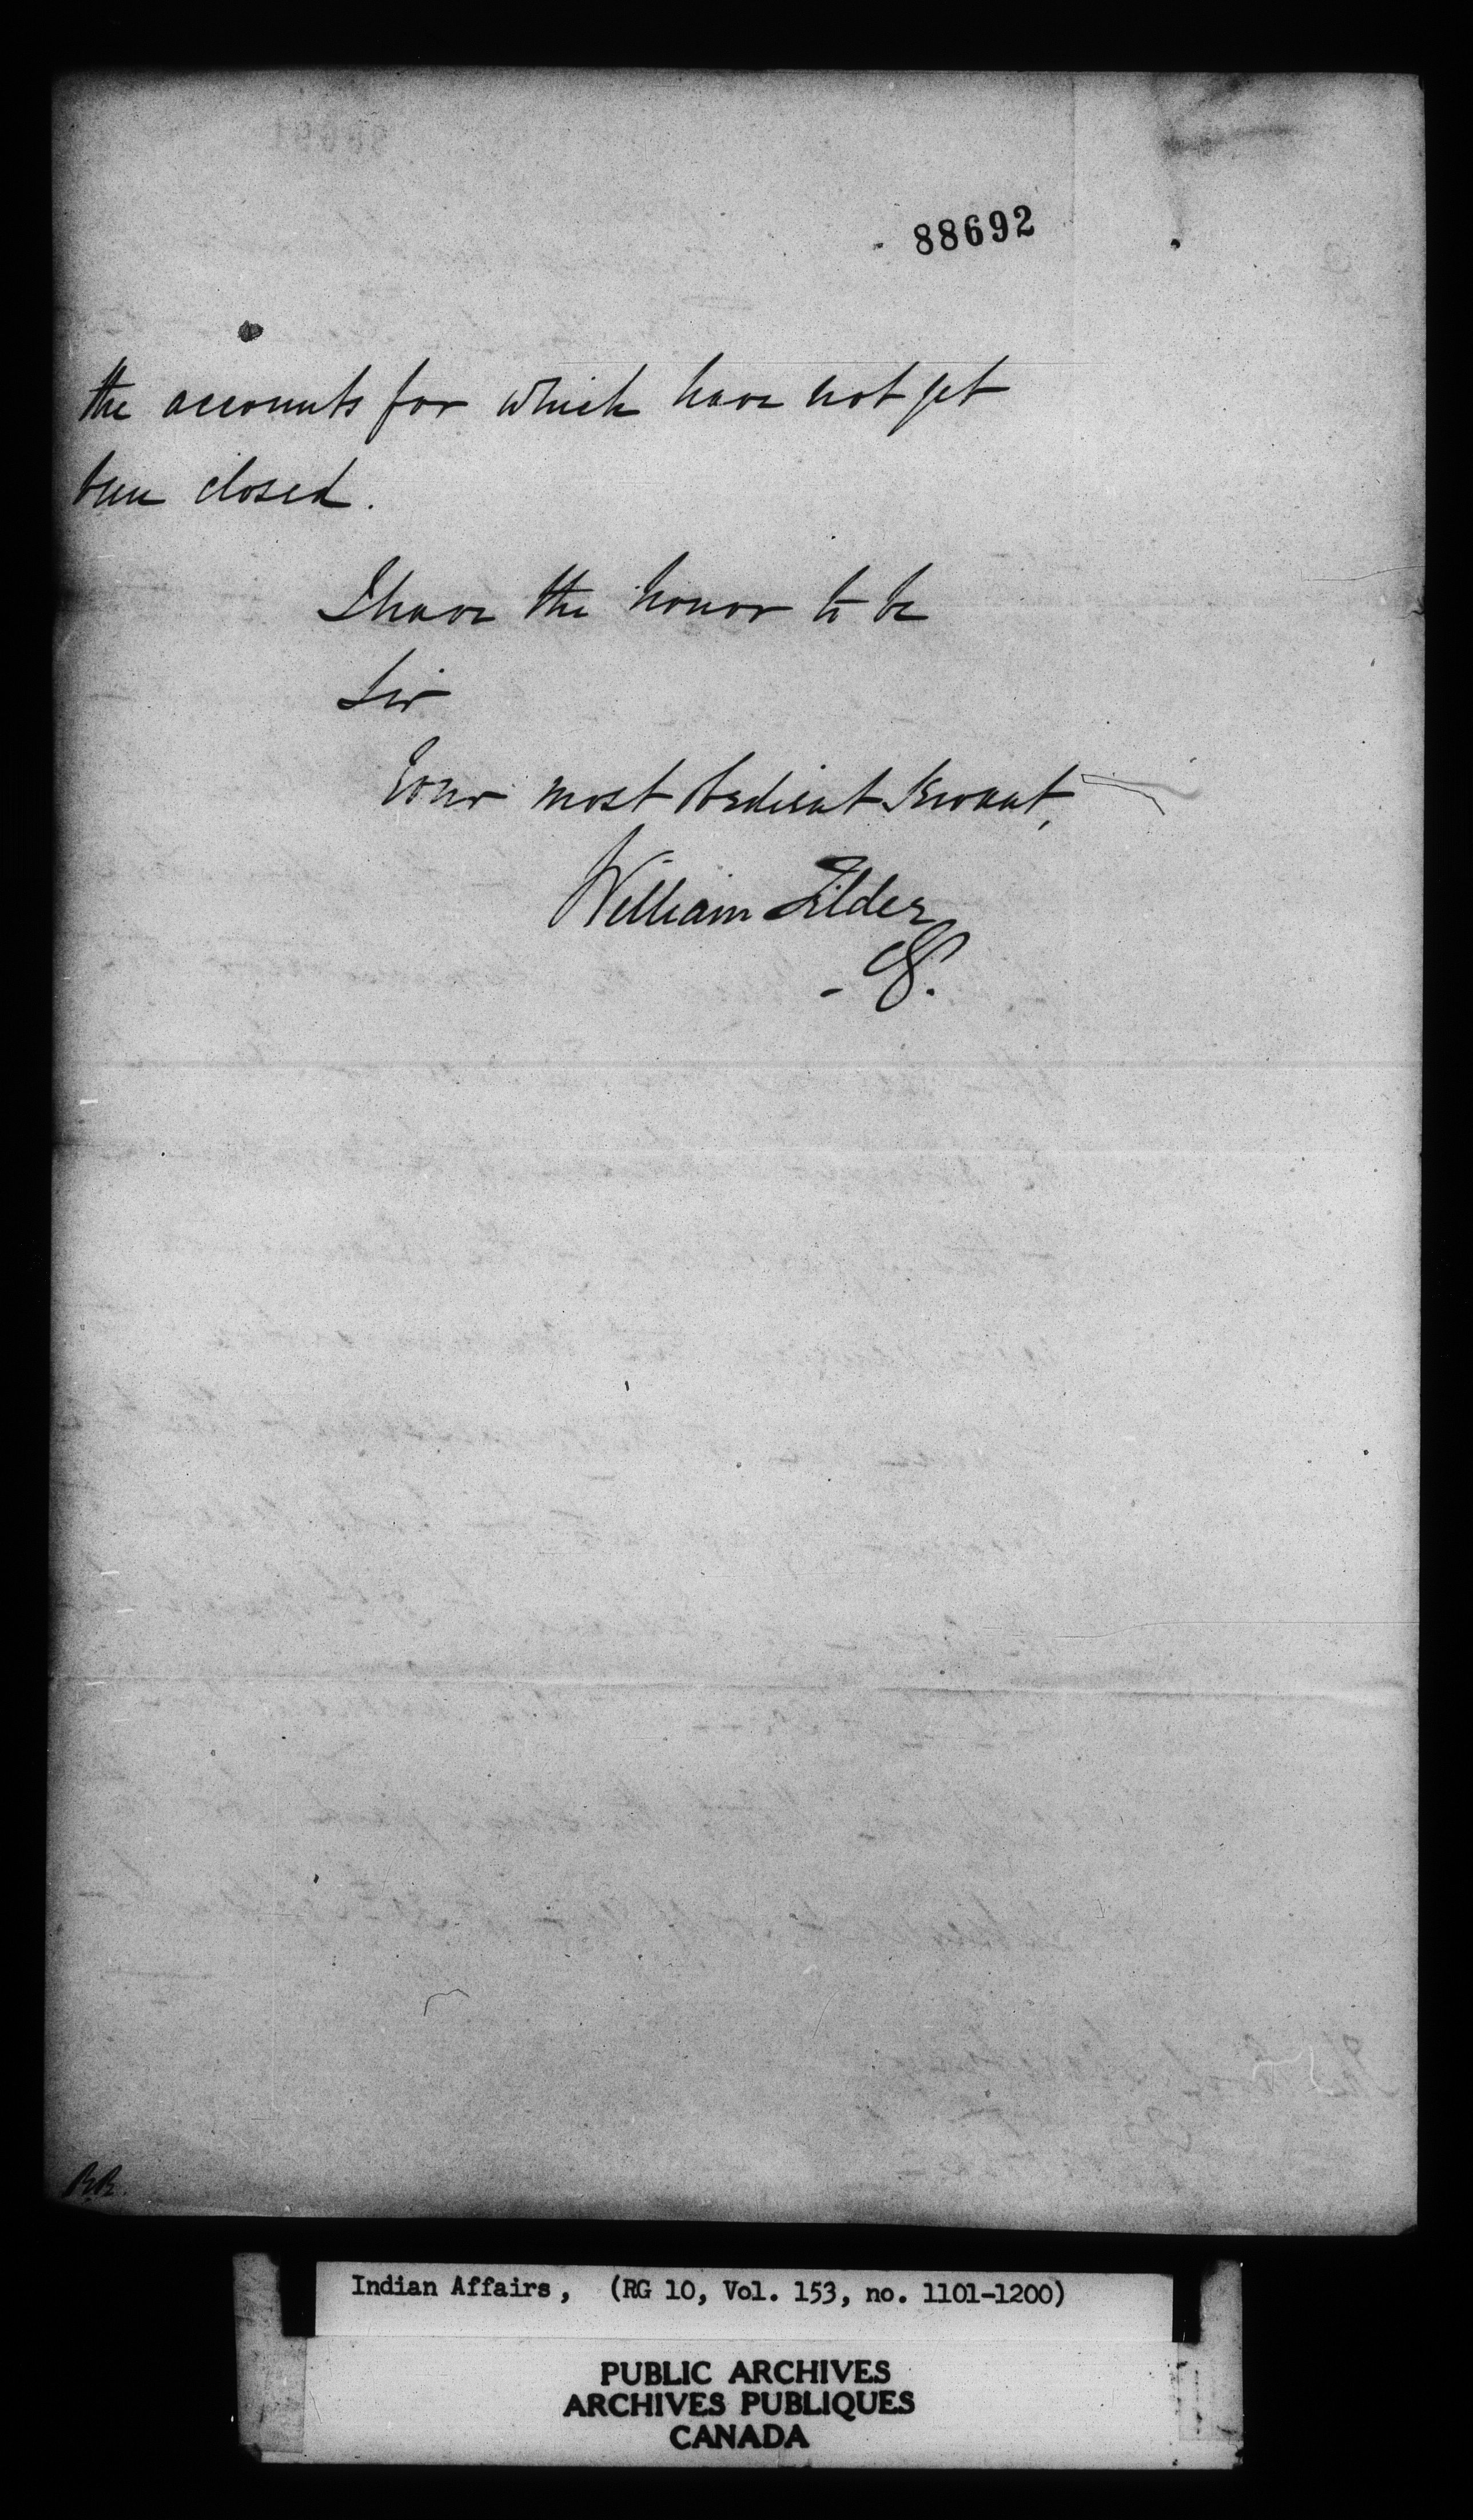 88692
the accounts for which have not yet
been closed.
I have the honor to be
Sir
Your most Obedient Servant,
William Filder
CG.
Indian Affairs, (RG 10, Vol. 153, no. 1101-1200)
PUBLIC ARCHIVES
ARCHIVES PUBLIQUES
CANADA